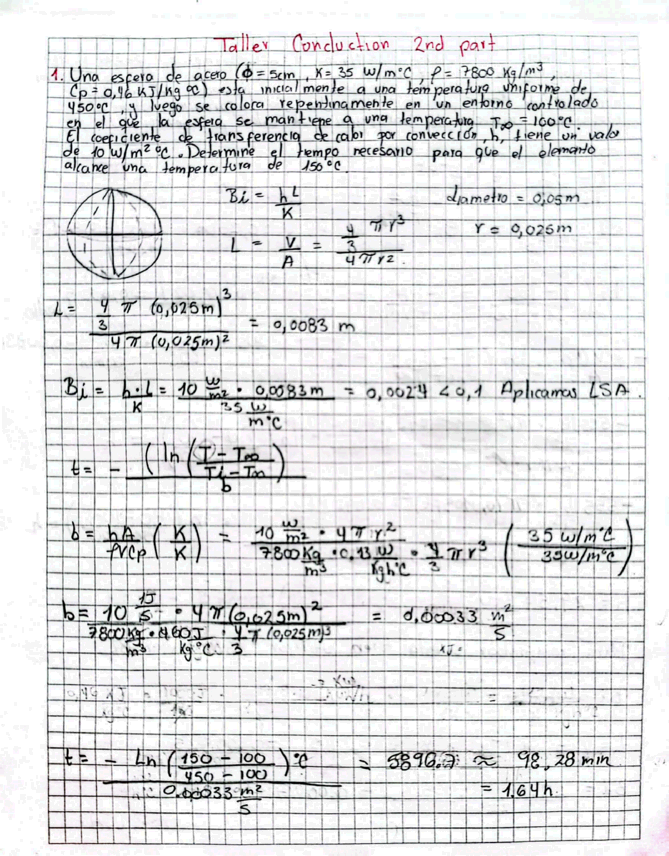 Taller Conduction 2nd part
1. Una esfera de acero (Φ = 5cm, K = 35 W/m°C, ρ = 7800 Kg/m³,
Cp = 0,46 KJ/Kg °C) esta inicialmente a una temperatura uniforme de
450°C, y luego se colora repentinamente en un entorno controlado
en el que la esfera se mantiene a una temperatura T∞ = 100°C
El coeficiente de transferencia de calor por convección, h, tiene un valor
de 10 W/m² °C. Determine el tiempo necesario para que el elemento
alcance una temperatura de 150°C.
Bi = hL / K
diametro = 0,05m
L = V / A = 4/3 π r³ / 4πr²
r = 0,025m
L = 4/3 π (0,025m)³ / 4π(0,025m)² = 0,0083 m
Bi = h·L / K = 10 W/m² · 0,0083m / 35 W/m°C = 0,0024 < 0,1 Aplicamos LSA.
t = - (ln (T - T∞ / Ti - T∞)) / b
b = hA / ρVCp (K / K) = 10 W/m² · 4πr² / 7800 Kg/m³ · 0.13 W/Kgh°C · 4/3 πr³ (35 W/m°C / 35W/m°C)
b = 10 1J/S · 4π(0,025m)² / 7800 Kg/m³ · 460 J/Kg°C · 4/3 π(0,025m)³ = 0.00033 m²/S
t = - Ln (150 - 100 / 450 - 100) °C / 0.00033 m²/S = 5896.7 ≈ 98.28 min
= 1.64h.